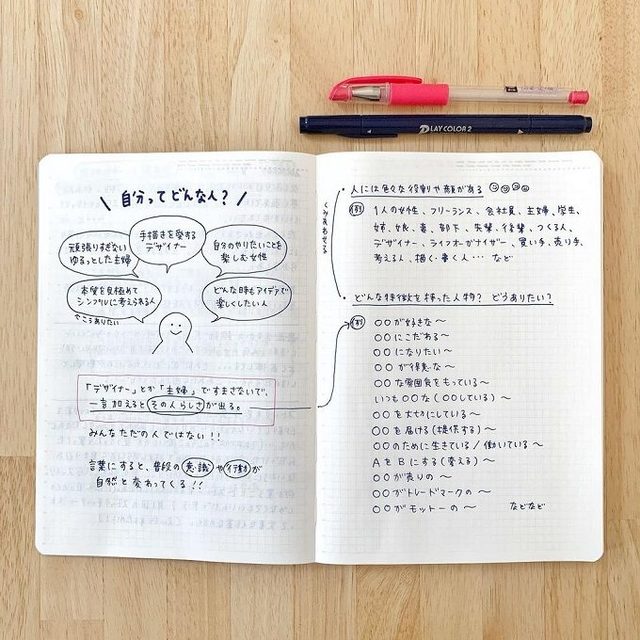 PLAY COLOR 2
\ 自分ってどんな人? /
頑張りすぎない
ゆるっとした主婦
手描きを愛する
デザイナー
自分のやりたいことを
楽しむ女性
本質を見極めて
シンプルに考えられる人
やこうありたい
どんな時もアイデアで
楽しくしたい人
「デザイナー」とか「主婦」ですまさないで、
一言加えるとその人らしさが出る。
みんなただの人ではない!!
言葉にすると、普段の意識や行動が
自然と変わってくる!!
くみあわせる
・人には色々な役割や顔がある
例 1人の女性、フリーランス、会社員、主婦、学生、
姉、妹、妻、部下、先輩、後輩、つくる人、
デザイナー、ライフオーガナイザー、買い手、売り手、
考える人、描く・書く人… など
・どんな特徴を持った人物? どうありたい?
例 〇〇が好きな〜
〇〇にこだわる〜
〇〇になりたい〜
〇〇が得意な〜
〇〇な雰囲気をもっている〜
いつも〇〇な(〇〇している)〜
〇〇を大切にしている〜
〇〇を届ける(提供する)〜
〇〇のために生きている/働いている〜
AをBにする(変える)〜
〇〇が売りの〜
〇〇がトレードマークの〜
〇〇がモットーの〜 などなど